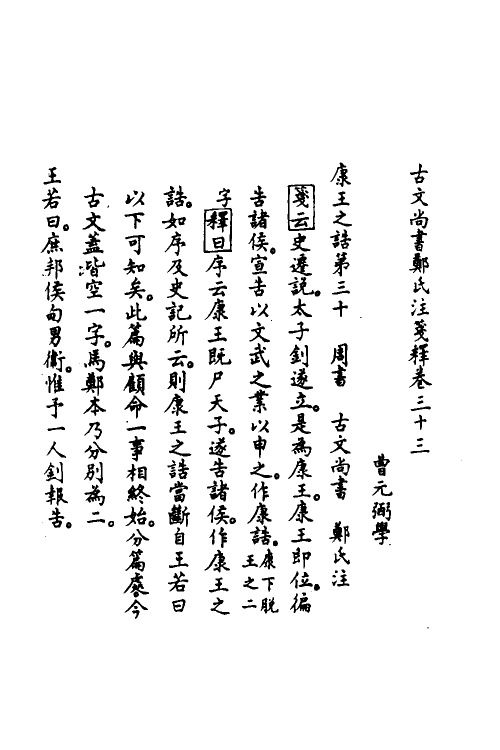 古文尚書鄭氏注箋釋卷三十三
曹元弼學
康王之誥第三十　周書　古文尚書　鄭氏注
箋云史遷説。太子釗遂立。是為康王。康王即位。徧
告諸侯。宣告以文武之業以申之。作康誥。康下脫王之二
字釋曰序云康王既尸天子。遂告諸侯。作康王之
誥。如序及史記所云。則康王之誥當斷自王若曰
以下可知矣。此篇與顧命一事相終始。分篇處今
古文蓋皆空一字。馬鄭本乃分別為二。
王若曰。庶邦侯甸男衞。惟予一人釗報告。